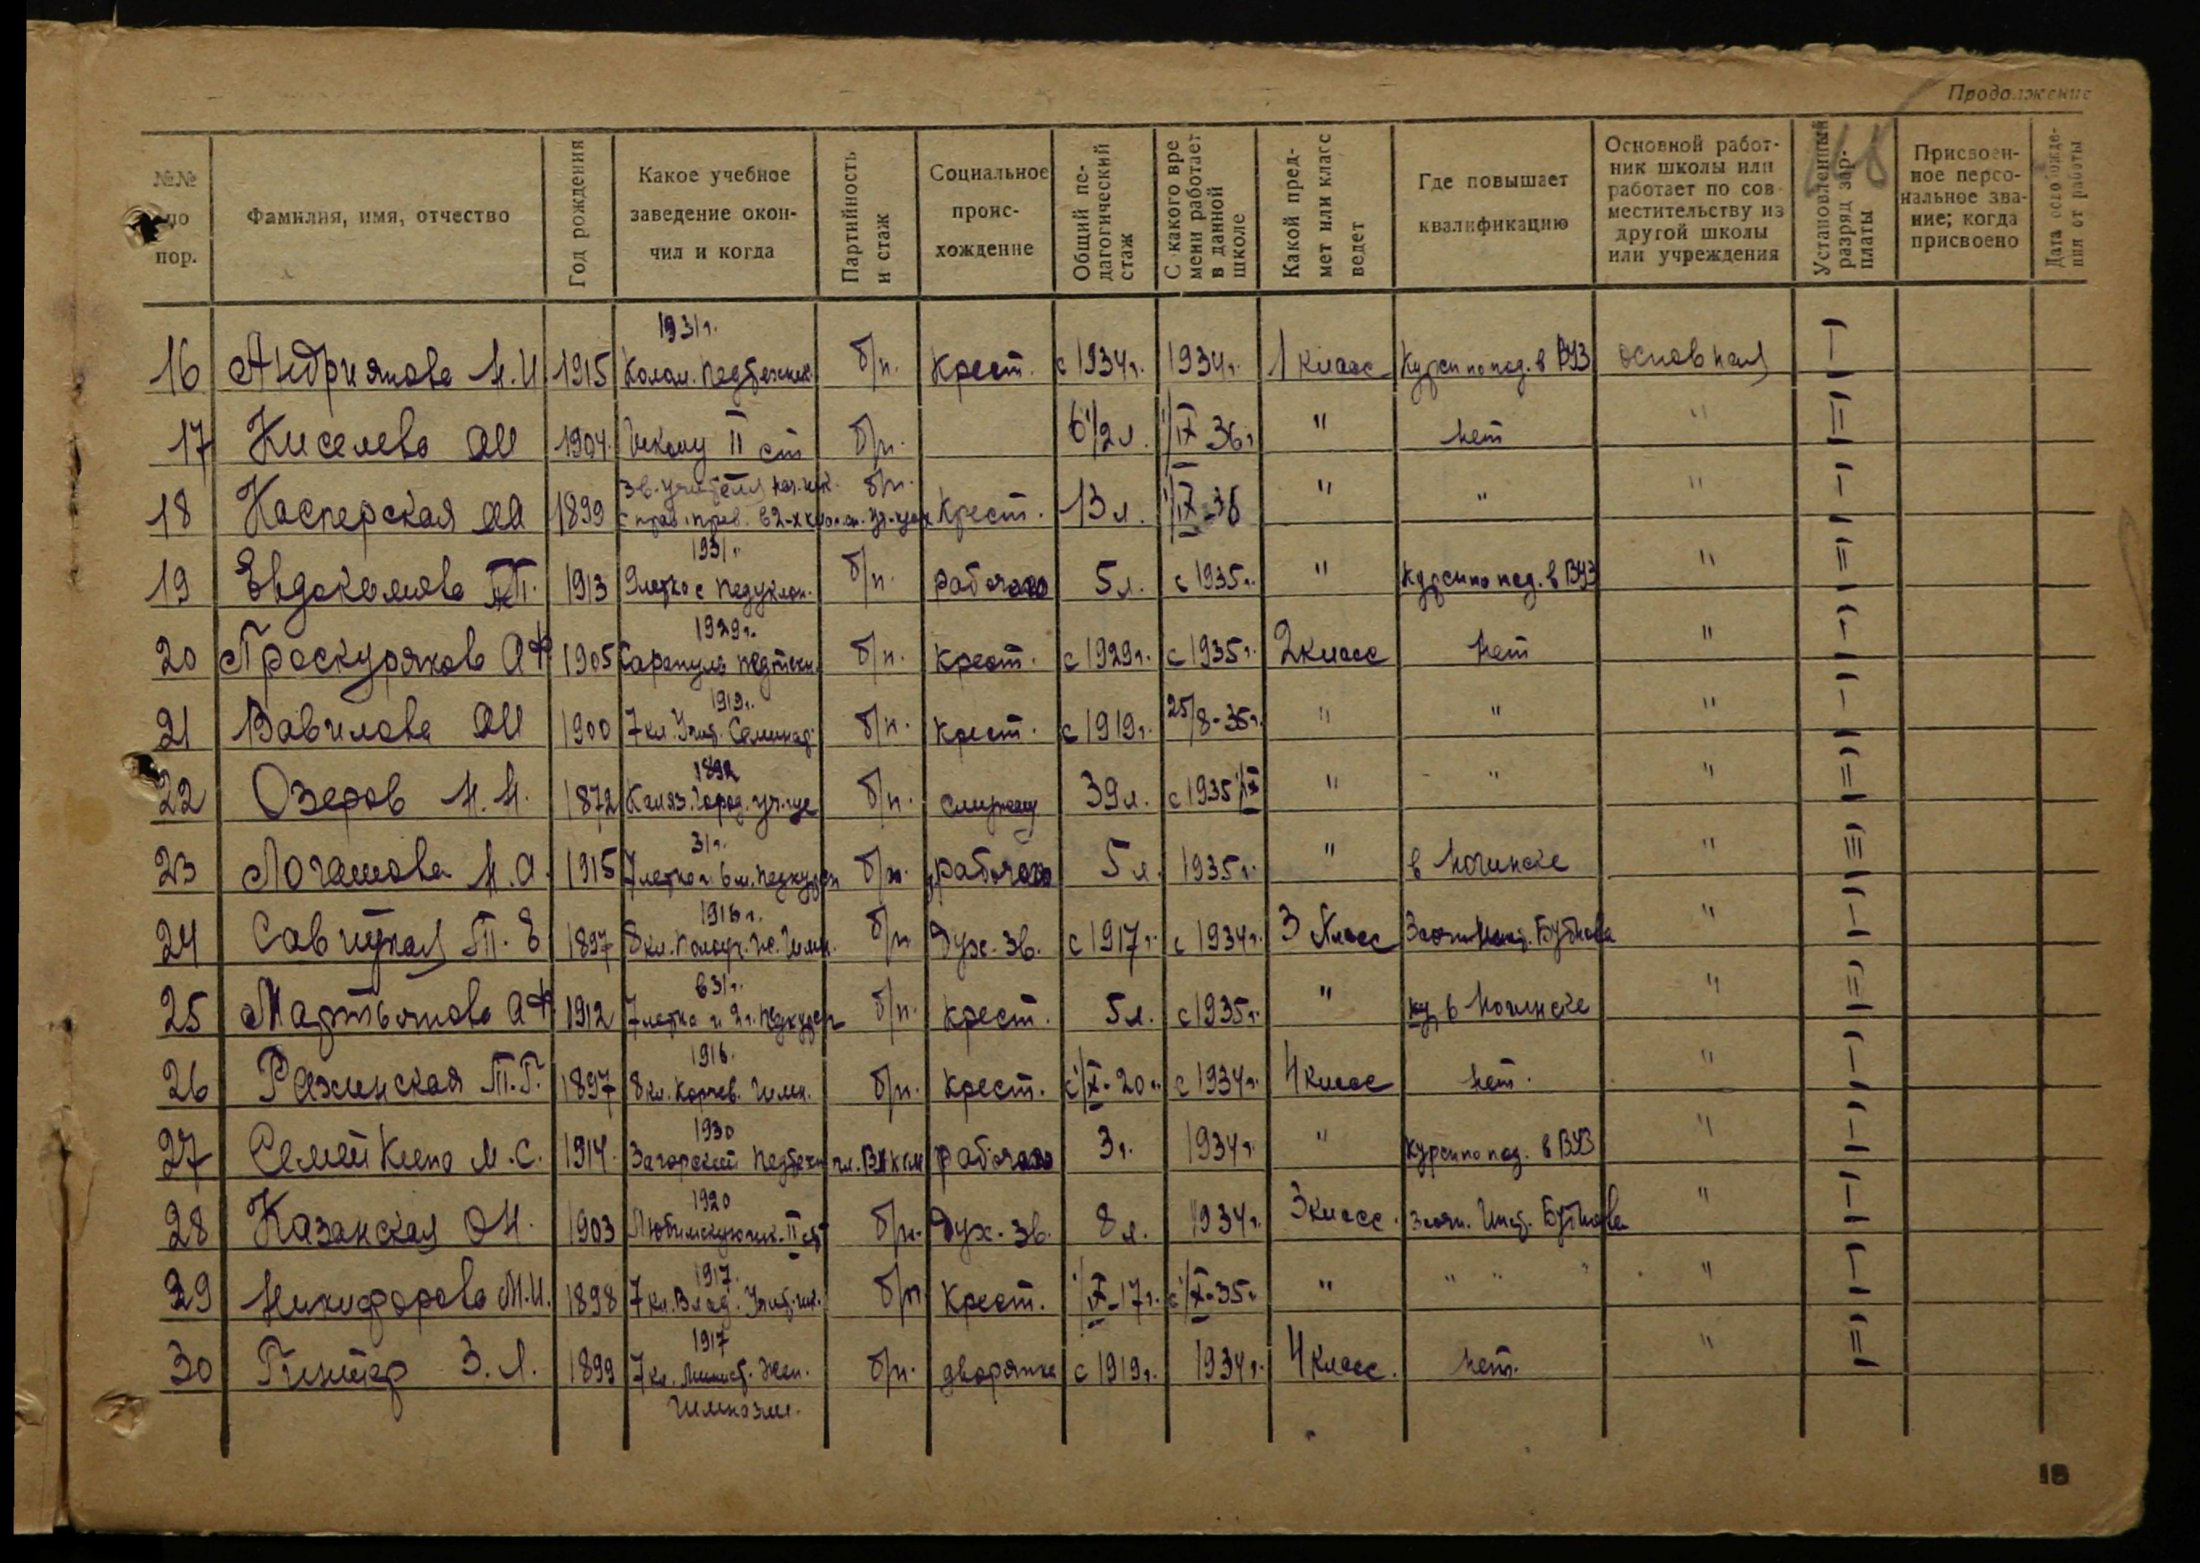 Продолжение
18
№№ по пор.
Фамилия, имя, отчество
Год рождения
Какое учебное заведение окончил и когда
Партийность и стаж
Социальное происхождение
Общий педагогический стаж
С какого времени работает в данной школе
Какой предмет или класс ведет
Где повышает квалификацию
Основной работник школы или работает по совместительству из другой школы или учреждения
Установленный разряд зарплаты
Присвоенное персональное звание; когда присвоено
Дата освобождения от работы
1931 г.
16 Андриянова Н.И 1915 Колом. Педтехник. б/п. Крест. с 1934 г. 1934 г. 1 класс Курсы по под. в ВУЗ основная I
17 Киселева АИ 1904 Школу II ст б/п. 6 1/2 л. 1/IX 36 г. " нет " II
Зв. учителя нач. шк.
18 Касперская АА 1899 с прав. преп. в 2-х клас. уч-щах б/п. Крест. 13 л. 1/IX-36 " " " I
1931 г.
19 Евдокимова П. 1913 9летка с педуклон. б/п. рабочего 5 л. с 1935 г. " Курсы по под. в ВУЗ " II
1929 г.
20 Проскурякова АФ 1905 Сарапул педтехн. б/п. крест. с 1929 г. с 1935 г. 2 класс нет " I
1919 г.
21 Вавилова АИ 1900 7 кл. Учит. Семинар. б/п. крест. с 1919 г. 25/8-35 г. " " " I
1892
22 Озеров Н.Н. 1872 Каляз. Город. уч-ще б/п. 39 л. с 1935 1/IX " " " II
31 г.
23 Логашова Н.А. 1915 7летка и 6 м. педкурсы б/п. рабочего 5 л. 1935 г. " в Ногинске " III
1916 г.
24 Савицкая П. Е 1897 8 кл. гимн. б/п Дух. зв. с 1917 г. с 1934 г. 3 класс Заочн. Инст. Бубнова " I
в 31 г.
25 Мартьянова АФ 1912 7летка и 2 г. педкурсы б/п. крест. 5 л. с 1935 г. " кур. в Ногинске " II
1916.
26 Ражинская П.Г. 1897 8 кл. Корчев. Гимн. б/п. крест. с 1/IX-20 г. с 1934 г. 4 класс нет. " I
1930
27 Семейкина М.С. 1914 Загорский педтехн чл. ВЛКСМ рабочего 3 г. 1934 г. " курсы по под. в ВУЗ " I
1920
28 Казанская ОН. 1903 Любимскую шк. II ст б/п. Дух. зв. 8 л. 1934 г. 3 класс. Заоч. Инст. Бубнова " I
1917.
29 Никифорова М.И. 1898 7 кл. Влад. Учит. шк. б/п Крест. 1/IX-17 г. с 1/IX-35 г. " " " " " I
1917
30 Гинтер З.Л. 1899 7 кл. Минист. Жен. Гимназии. б/п. дворянка с 1919 г. 1934 г. 4 класс. нет. " II
18